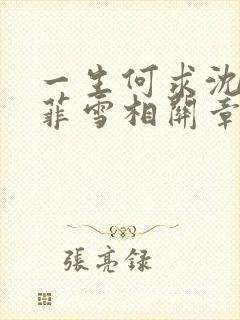 一生何求沈
菲雪相關章
張亮録